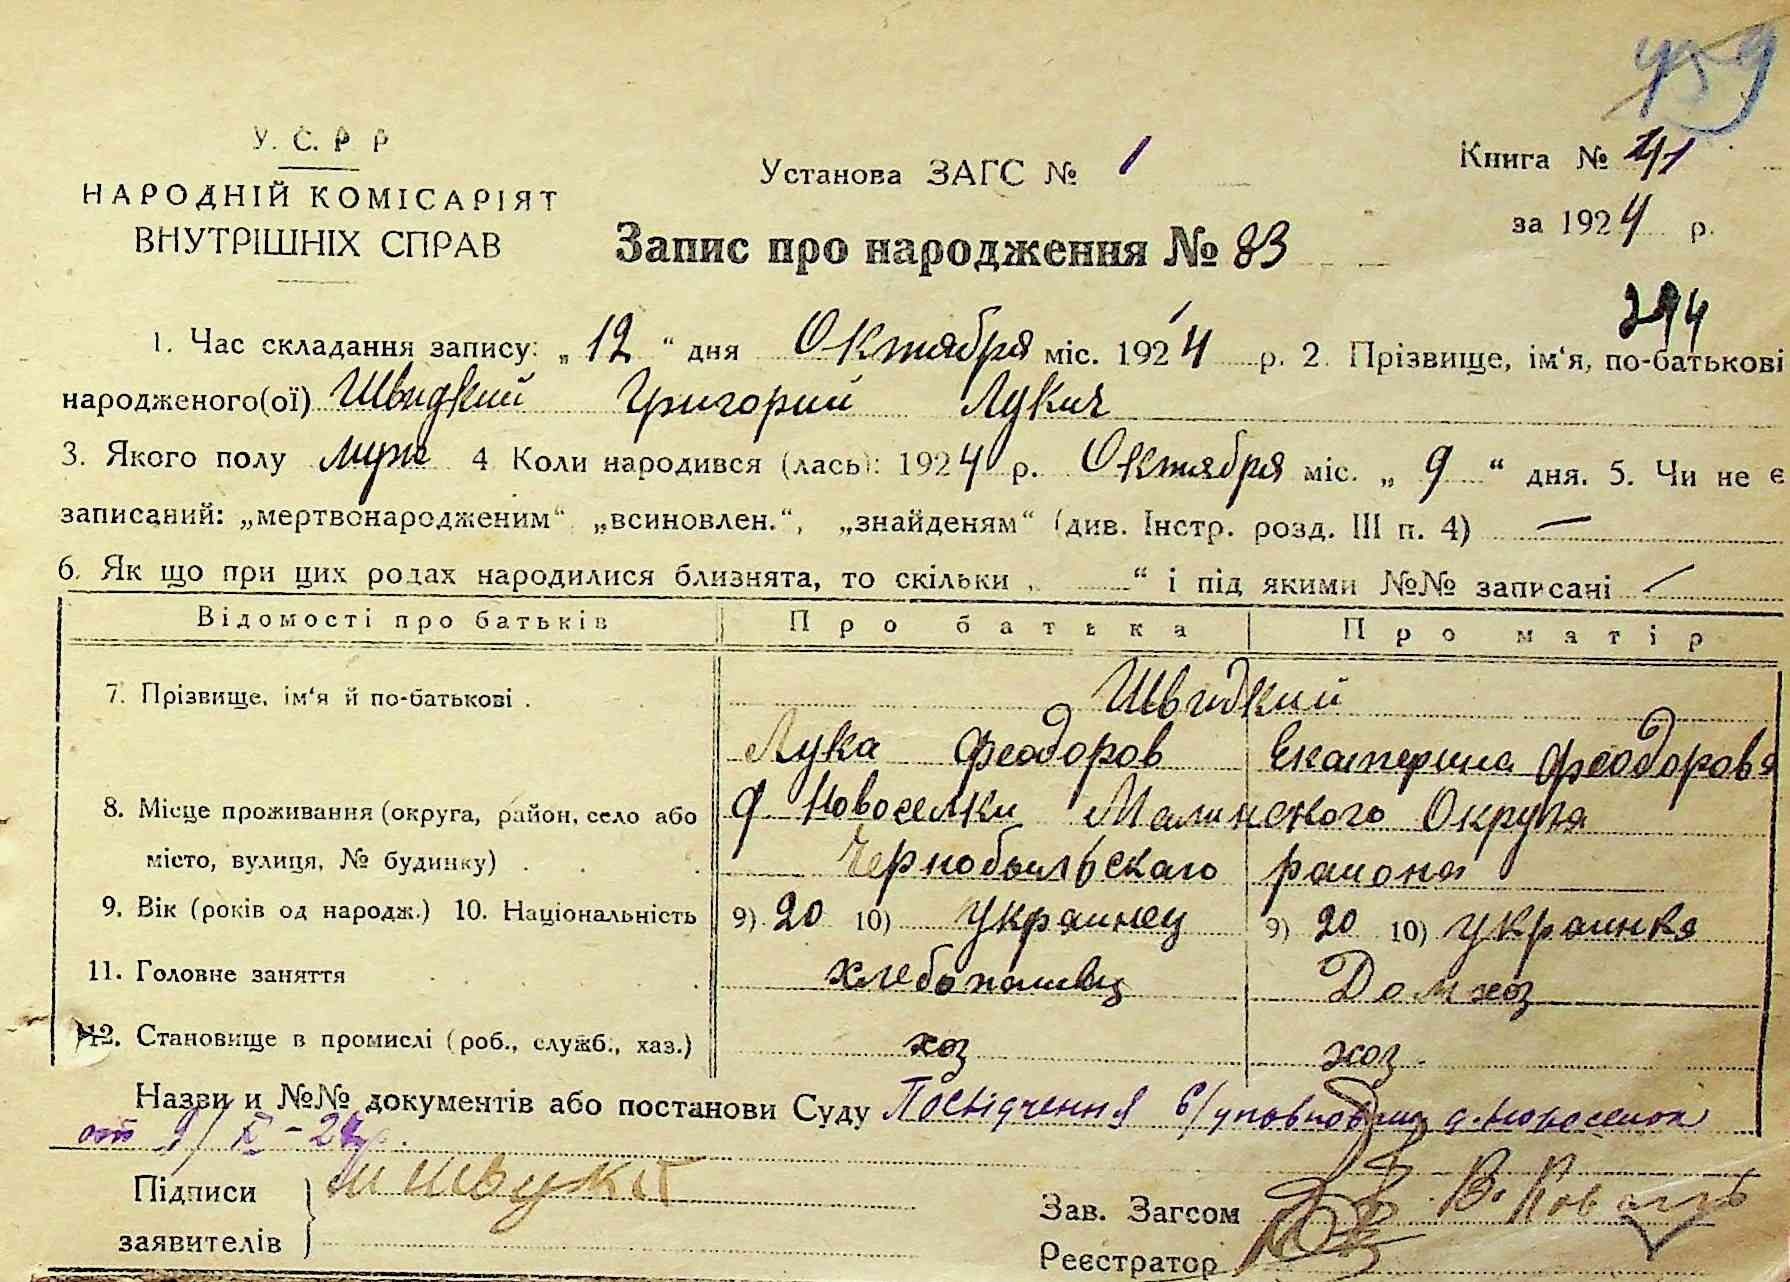 459
У. С. Р Р
НАРОДНІЙ КОМІСАРІЯТ
ВНУТРІШНІХ СПРАВ
Установа ЗАГС № 1
Книга № 41
за 1924 р.
Запис про народження № 83
294
1. Час складання запису: „12“ дня Октября міс. 1924 р. 2. Прізвище, ім‘я, по-батькові
народженого(ої) Швидкий Григорий Лукич
3. Якого полу муж 4 Коли народився (лась): 1924 р. Октября міс. „9“ дня. 5. Чи не є
записаний: „мертвонародженим“ „всиновлен.“, „знайденям“ (див. Інстр. розд. III п. 4) —
6. Як що при цих родах народилися близнята, то скільки „ “ і під якими №№ записані —
Відомості про батьків Про батька Про матір
7. Прізвище, ім‘я й по-батькові . Швидкий
Лука Феодоров Екатерина Феодорова
8. Місце проживання (округа, район, село або д. Новоселки Малинского Округа
місто, вулиця, № будинку) . . . Чернобыльскаго района
9. Вік (років од народж.) 10. Національність 9) 20 10) украинец 9) 20 10) украинка
11. Головне заняття хлебопашец Домхоз
12. Становище в промислі (роб., служб., хаз.) хоз хоз.
Назви и №№ документів або постанови Суду Посвідчення с/уповнов д. Новоселок
от 9/X-24р.
Підписи
заявителів
Зав. Загсом В. Коваль
Реєстратор